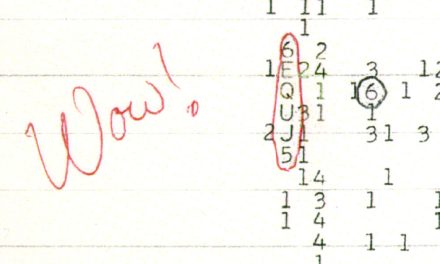 1 11 1
1
6 2
1 E 24 3 12
Q 1 16 1 2
U31 1
2 J1 31 3
51
14 1
1 3 1 1
1 4 1
4 1 1
1
Wow!